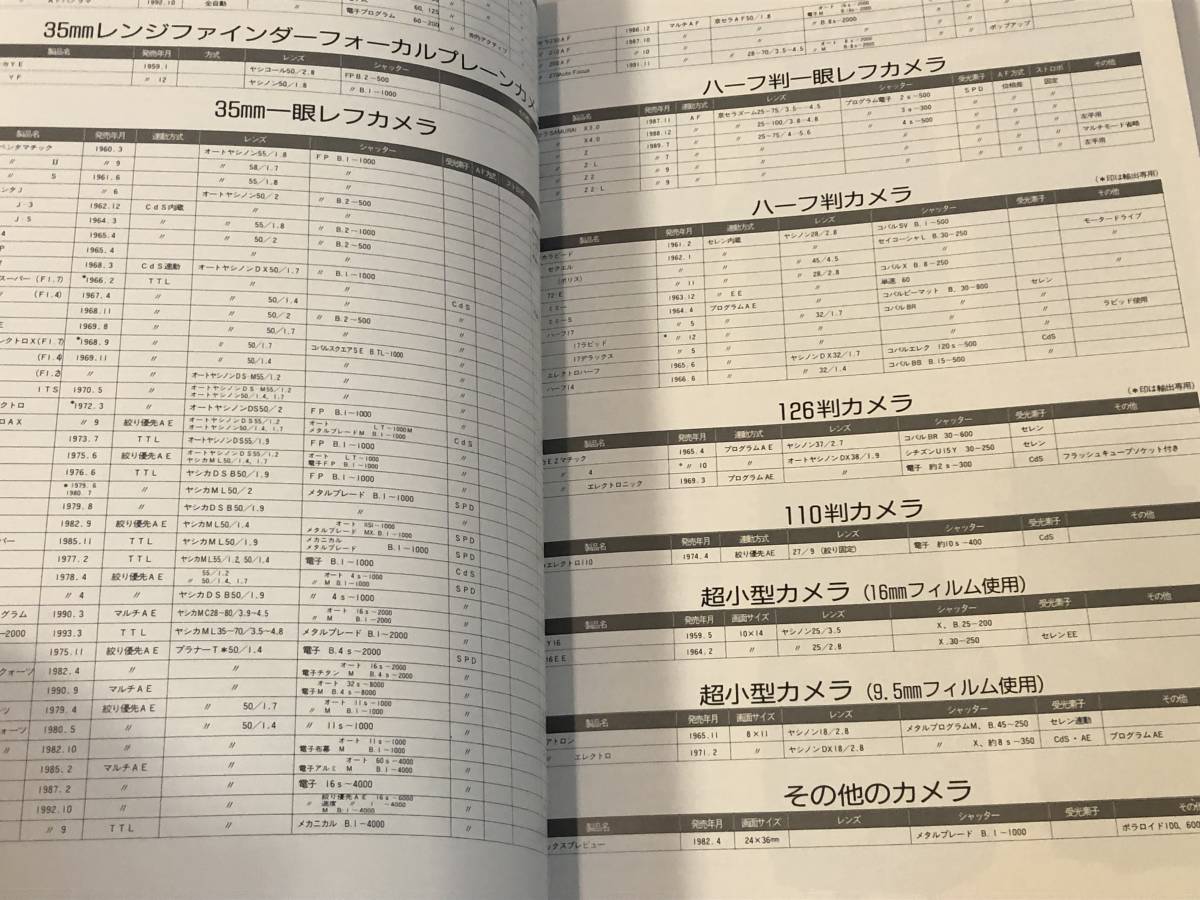 35mmレンジファインダーフォーカルプレーンカメ
製品名 発売年月 方式 レンズ シャッター
YE 1959.1 ヤシコール50/2.8 FP B.2−500
YF 〃 12 ヤシノン50/1.8 〃 B.1−1000
35mm一眼レフカメラ
製品名 発売年月 連動方式 レンズ シャッター 受光素子 AF方式 ストロボ
ペンタマチック 1960.3 オートヤシノン55/1.8 FP B.1−1000
〃 II 〃 9 〃 58/1.7 〃
〃 S 1961.6 〃 55/1.8 〃
ンタJ 〃 6 オートヤシノン50/2 〃 B.2−500
J-3 1962.12 CdS内蔵 〃 〃
J-5 1964.3 〃 〃 55/1.8 〃 B.2−1000
4 1965.4 〃 〃 50/2 〃 B.2−500
P 1965.4 〃 〃
1968.3 CdS連動 オートヤシノンDX50/1.7 〃 B.1−1000
スーパー(F1.7) *1966.2 TTL 〃 〃
〃 (F1.4) 1967.4 〃 〃 50/1.4 〃 CdS
1968.11 〃 〃 50/2 〃 B.2−500 〃
E 1969.8 〃 〃 50/1.7 〃 〃
レクトロX(F1.7) *1968.9 〃 〃 50/1.7 コパルスクエアSE B.TL−1000 〃
(F1.4) 1969.11 〃 〃 50/1.4 〃 〃
(F1.2) 〃 〃 オートヤシノンDS-M55/1.2 〃 〃
ITS 1970.5 〃 オートヤシノンDS-M55/1.2 オートヤシノン50/1.4, 1.7 〃 〃
クトロ *1972.3 〃 オートヤシノンDS50/2 FP B.1−1000 〃
ロAX 〃 9 絞り優先AE オートヤシノンDS55/1.2 オートヤシノン50/1.4, 1.7 オート LT−1000M メタルブレードM B.1−1000 〃
1973.7 TTL オートヤシノンDS55/1.9 FP B.1−1000 CdS
1975.6 絞り優先AE オートヤシノンDS55/1.2 ヤシカML50/1.4, 1.7 オート LT−1000 電子FP B.1−1000 〃
1976.6 TTL ヤシカDSB50/1.9 FP B.1−1000 〃
*1979.6 1980.7 〃 ヤシカML50/2 メタルブレード B.1−1000 〃
1979.8 〃 ヤシカDSB50/1.9 〃 SPD
1982.9 絞り優先AE ヤシカML50/1.4 オート 11s−1000 メタルブレード MX.B.1−1000 〃
パー 1985.11 TTL ヤシカML50/1.9 メカニカル メタルブレード B.1−1000 SPD
1977.2 TTL ヤシカML55/1.2, 50/1.4 電子 B.1−1000 SPD
1978.4 絞り優先AE 〃 55/1.2 50/1.4, 1.7 オート 4s−1000 〃 M B.1−1000 CdS
〃 4 〃 ヤシカDSB50/1.9 〃 4s−1000 SPD
グラム 1990.3 マルチAE ヤシカMC28−80/3.9−4.5 オート 16s−2000 〃 M B.1−1000 〃
−2000 1993.3 TTL ヤシカML35−70/3.5−4.8 メタルブレード B.1−2000 〃
1975.11 絞り優先AE プラナーT*50/1.4 電子 B.4s−2000 SPD
クォーツ 1982.4 〃 〃 オート 16s−2000 電子チタン M B.4s−2000 〃
1990.9 マルチAE 〃 オート 32s−8000 電子M B.4s−8000 〃
ーツ 1979.4 絞り優先AE 〃 50/1.7 オート 11s−1000 〃 M B.1−1000 〃
ォーツ 1980.5 〃 〃 50/1.4 〃 11s−1000 〃
〃 1982.10 〃 〃 オート 11s−1000 電子布幕 M B.1−1000 〃
1985.2 マルチAE 〃 オート 60s−4000 電子アルミ M B.1−4000 〃
1987.2 〃 〃 電子 16s−4000 〃
1992.10 〃 〃 絞り優先AE 16s−6000 〃 速度 〃 1−4000 M B.1−4000 〃
〃 9 TTL 〃 メカニカル B.1−4000 〃
ハーフ判一眼レフカメラ
製品名 発売年月 連動方式 レンズ シャッター 受光素子 AF方式 ストロボ その他
セラSAMURAI X3.0 1987.11 AF 京セラズーム25−75/3.5−4.5 プログラム電子 2s−500 SPD 位相差 固定
〃 X4.0 1988.12 〃 〃 25−100/3.8−4.8 〃 3s−300 〃 〃 〃
〃 Z 1989.7 〃 〃 25−75/4−5.6 〃 4s−500 〃 〃 〃
〃 Z-L 〃 7 〃 〃 〃 〃 〃 〃 左手用
〃 Z2 〃 9 〃 〃 〃 〃 〃 〃 マルチモード省略
〃 Z2-L 〃 9 〃 〃 〃 〃 〃 〃 左手用
(*印は輸出専用)
ハーフ判カメラ
製品名 発売年月 連動方式 レンズ シャッター 受光素子 その他
カラピード 1961.2 セレン内蔵 ヤシノン28/2.8 コパルSV B.1−500
セクエル 1962.1 〃 〃 セイコーシャL B.30−250 モータードライブ
(ポリス) 〃 〃 45/4.5 〃 〃
72-E 〃 11 〃 〃 28/2.8 コパルX B.8−250
ミミー 1963.12 〃 EE 〃 単速 60
ミミーS 1964.4 プログラムAE 〃 コパルビーマット B.30−800 セレン
ハーフ17 〃 5 〃 〃 32/1.7 コパルBR 〃
17ラピッド *〃 12 〃 〃 〃 〃 ラピッド使用
17デラックス 〃 5 〃 〃 〃 〃
エレクトロハーフ 1965.6 〃 ヤシノンDX32/1.7 コパルエレク 120s−500 CdS
ハーフ14 1966.6 〃 〃 32/1.4 コパルBB B.15−500 〃
(*印は輸出専用)
126判カメラ
製品名 発売年月 連動方式 レンズ シャッター 受光素子 その他
カEZマチック 1965.4 プログラムAE ヤシノン37/2.7 コパルBR 30−600 セレン
〃 4 *〃 10 〃 オートヤシノンDX38/1.9 シチズンU15Y 30−250 セレン
〃 エレクトロニック 1969.3 プログラムAE 〃 電子 約2s−300 CdS フラッシュキューブソケット付き
110判カメラ
製品名 発売年月 連動方式 レンズ シャッター 受光素子 その他
カエレクトロ110 1974.4 絞り優先AE 27/9(絞り固定) 電子 約10s−400 CdS
超小型カメラ(16mmフィルム使用)
製品名 発売年月 画面サイズ レンズ シャッター 受光素子 その他
Y16 1959.5 10×14 ヤシノン25/3.5 X、B.25−200
16EE 1964.2 〃 〃 25/2.8 X.30−250 セレンEE
超小型カメラ(9.5mmフィルム使用)
製品名 発売年月 画面サイズ レンズ シャッター 受光素子 その他
アトロン 1965.11 8×11 ヤシノン18/2.8 メタルプログラムM、B.45−250 セレン連動
〃 エレクトロ 1971.2 〃 ヤシノンDX18/2.8 〃 X、約8s−350 CdS・AE プログラムAE
その他のカメラ
製品名 発売年月 画面サイズ レンズ シャッター 受光素子 その他
ックスプレビュー 1982.4 24×36mm メタルブレード B.1−1000 ポラロイド100、600